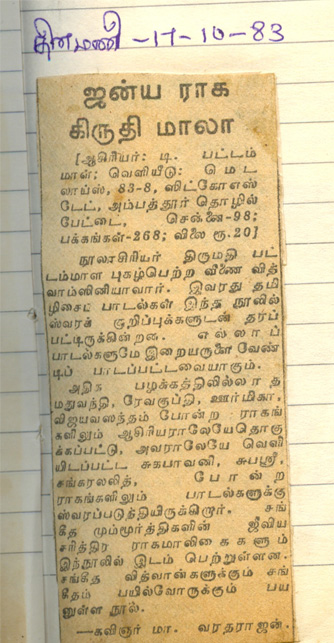 தினமணி -17-10-83
ஜன்ய ராக
கிருதி மாலா
[ஆசிரியர்: டி. பட்டம்
மாள்; வெளியீடு: மெட
லாப்ஸ், 83-8, ஸிட்கோஎஸ்
டேட், அம்பத்தூர் தொழில்
பேட்டை, சென்னை-98;
பக்கங்கள்-268; விலை ரூ.20]
நூலாசிரியர் திருமதி பட்
டம்மாள புகழ்பெற்ற வீணை வித்
வாம்ஸினியாவார். இவரது தமி
ழிசைப் பாடல்கள் இந்த நூலில்
ஸ்வரக் குறிப்புக்களுடன் தரப்
பட்டிருக்கின்றன. எல்லாப்
பாடல்களுமே இறையருளை வேண்
டிப் பாடப்பட்டவையாகும்.
அதிக பழக்கத்திலில்லாத
மதுவந்தி, ரேவகுப்தி, ஊர்மிகா,
விஜயவஸந்தம் போன்ற ராகங்
களிலும் ஆசிரியராலேயேதொகு
க்கப்பட்டு, அவராலேயே வெளி
யிடப்பட்ட சுகபாவனி, சுபஸ்ரீ,
சங்கரலலித், போன்ற
ராகங்களிலும் பாடல்களுக்கு
ஸ்வரப்படுத்தியிருக்கிறார். சங்
கீத மும்மூர்த்திகளின் ஜீவிய
சரித்திர ராகமாலிகைகளும்
இந்நூலில் இடம் பெற்றுள்ளன.
சங்கீத வித்வான்களுக்கும் சங்
கீதம் பயில்வோருக்கும் பய
னுள்ள நூல்.
—கவிஞர் மா. வரதராஜன்.